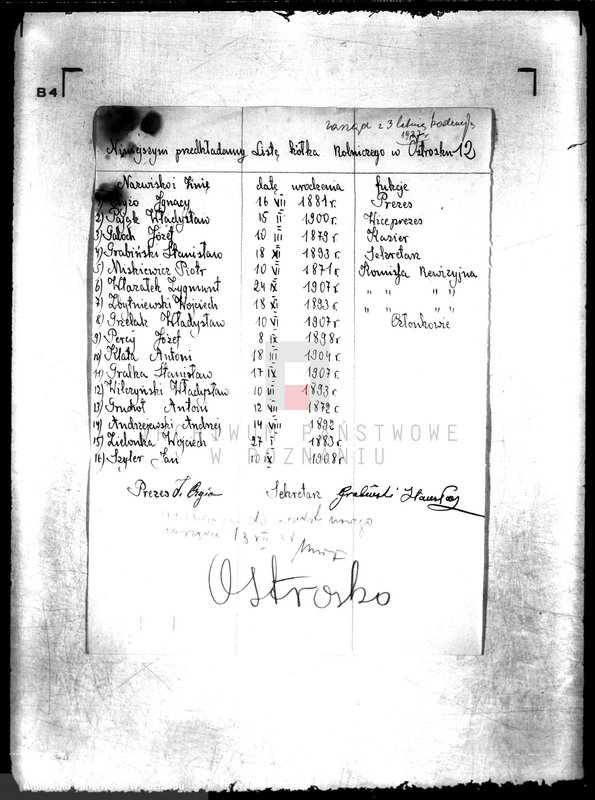 B4
zarząd z 3 letnią kadencją
1937 r.
Niniejszym przedkładamy Listę kółka Rolniczego w Ostrosku 12
Nazwisko i Imię datę urodzenia fukcje
Ignacy 16 VII 1881 r. Prezes
2) Pająk Władysław 15 II 1900 r. Wiceprezes
3) Gałoch Józef 10 III 1879 r. Kasier
4) Grabiński Stanisław 18 XII 1893 r. Sekretarz
5) Miskiewicz Piotr 10 VI 1871 r. Komisja Rewizyjna
6) Waratek Zygmunt 24 IX 1907 r. " " " "
7) Zbytniewski Wojciech 18 XI 1893 r. " " " "
8) Grzelak Władysław 10 VI 1907 r. Członkowie
9) Percij Józef 8 IX 1898 r
10) Klata Antoni 18 III 1904 r.
11) Gralka Stanisław 17 IX 1907 r.
12) Wilczyński Władysław 10 VI 1893 r.
13) Antoni 12 VII 1872 r.
14) Andrzejewski Andrej 14 VIII 1892
15) Zielonka Wojciech 27 I 1883 r.
16) Szyler Jan 10 IX 1908 r.
ARCHIWUM PAŃSTWOWE
W POZNANIU
Prezes Sekretarz Grabiński
nowego
zarządu
Ostrosko